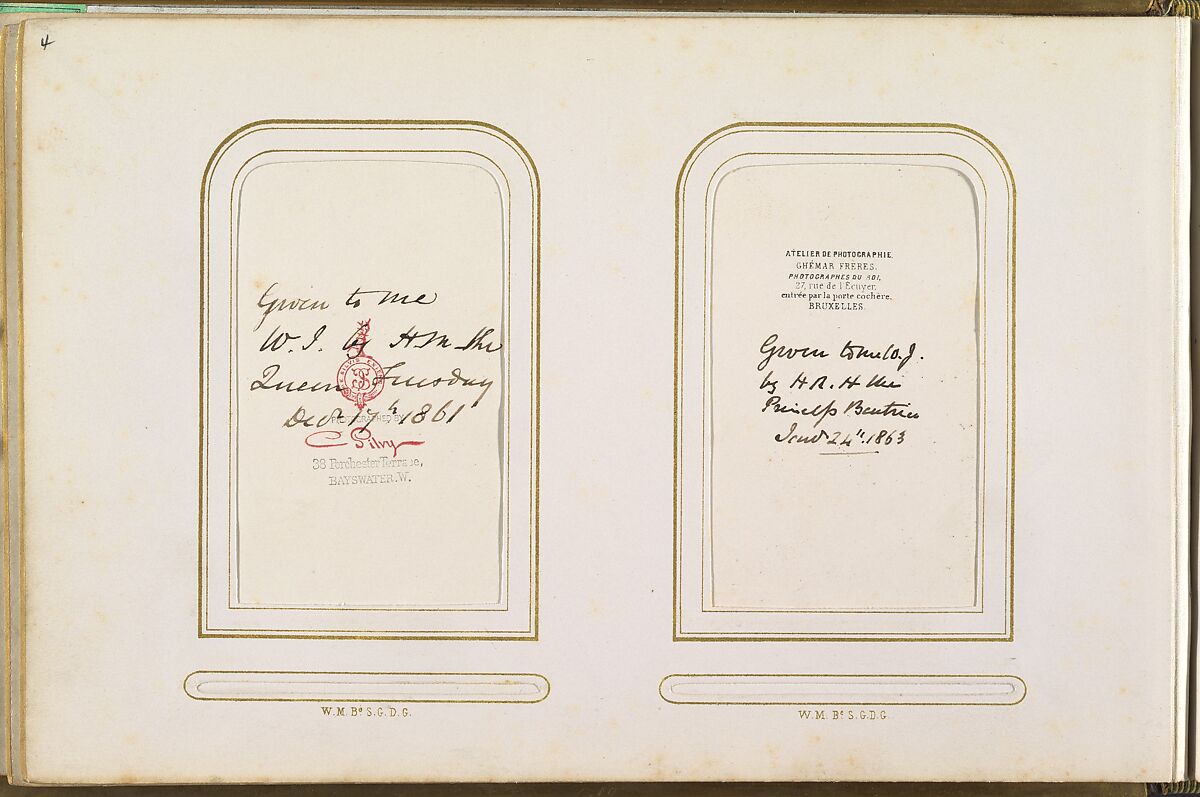 4
Given to me
W. J. by H M the
Queen Tuesday
Decr 17th 1861
PHOTOGRAPHED BY
C Silvy
38 Porchester Terrace,
BAYSWATER. W.
ATELIER DE PHOTOGRAPHIE.
GHÉMAR FRERES.
PHOTOGRAPHES DU ROI,
27, rue de l'Ecuyer.
entrée par la porte cochère.
BRUXELLES.
Given to me W. J.
by H R. H the
Princess Beatrice
Jany 24th 1863
W. M. Bé S. G. D. G.
W. M. Bé S. G. D. G.